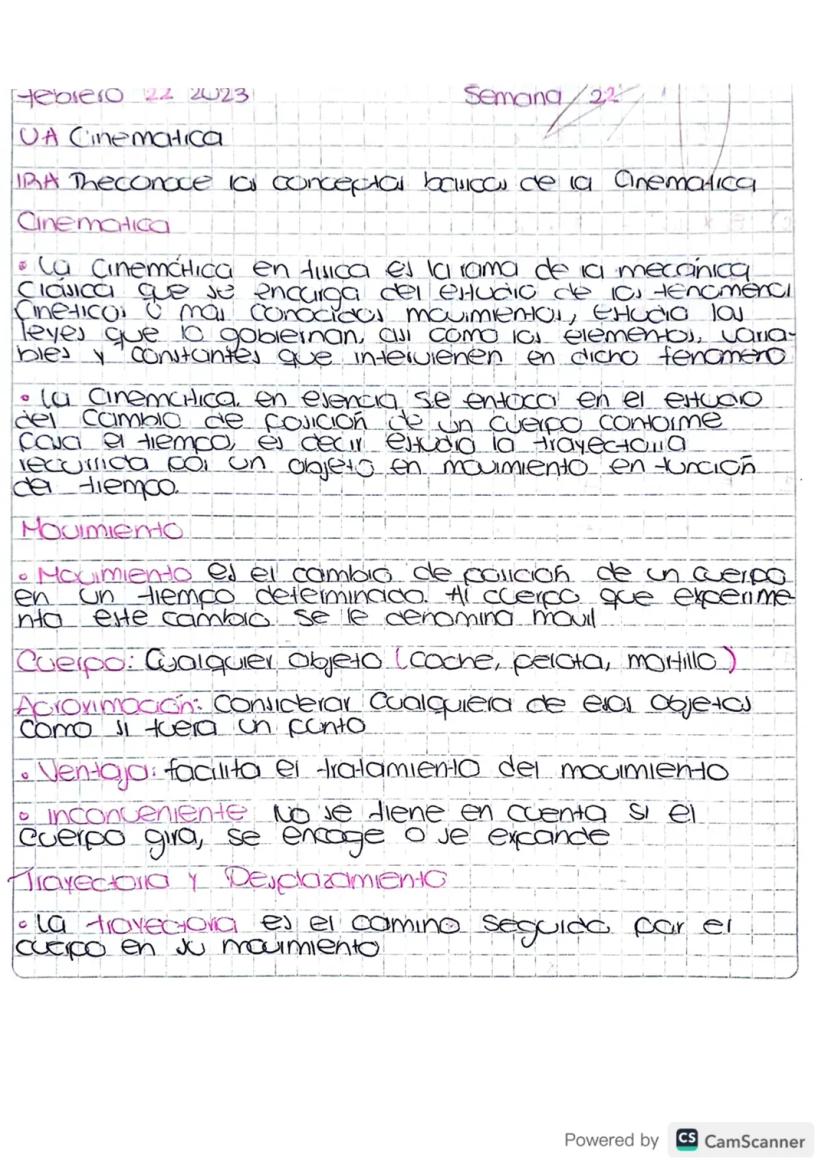 febrero 22 2023 Semana 22
UA Cinematica
IBA Reconoce los conceptos basicos de la Cinematica
Cinematica
• La Cinemática en fisica es la rama de la mecánica
Clásica que se encarga del estudio de los fenomenos
Cineticos o mas conocidos movimientos, estudia las
leyes que lo gobiernan, asi como los elementos, varia-
bles y constantes que intervienen en dicho fenomeno
• La Cinematica en esencia se enfoca en el estudio
del cambio de posición de un cuerpo conforme
pasa el tiempo, es decir estudia la trayectoria
recurrida por un objeto en movimiento en función
del tiempo.
Movimiento
• Movimiento es el cambio de posición de un cuerpo
en un tiempo determinado. Al cuerpo que experime
nta este cambio se le denomina movil
Cuerpo: Cualquier objeto (coche, pelota, martillo)
Aproximación: Considerar Cualquiera de esos objetos
como si fuera un punto
• Ventaja: facilita el tratamiento del movimiento
• inconveniente No se tiene en cuenta si el
Cuerpo gira, se encoge o se expande
Trayectoria y Desplazamiento
• La trayectoria es el camino seguido por el
cuerpo en su movimiento
Powered by CS CamScanner